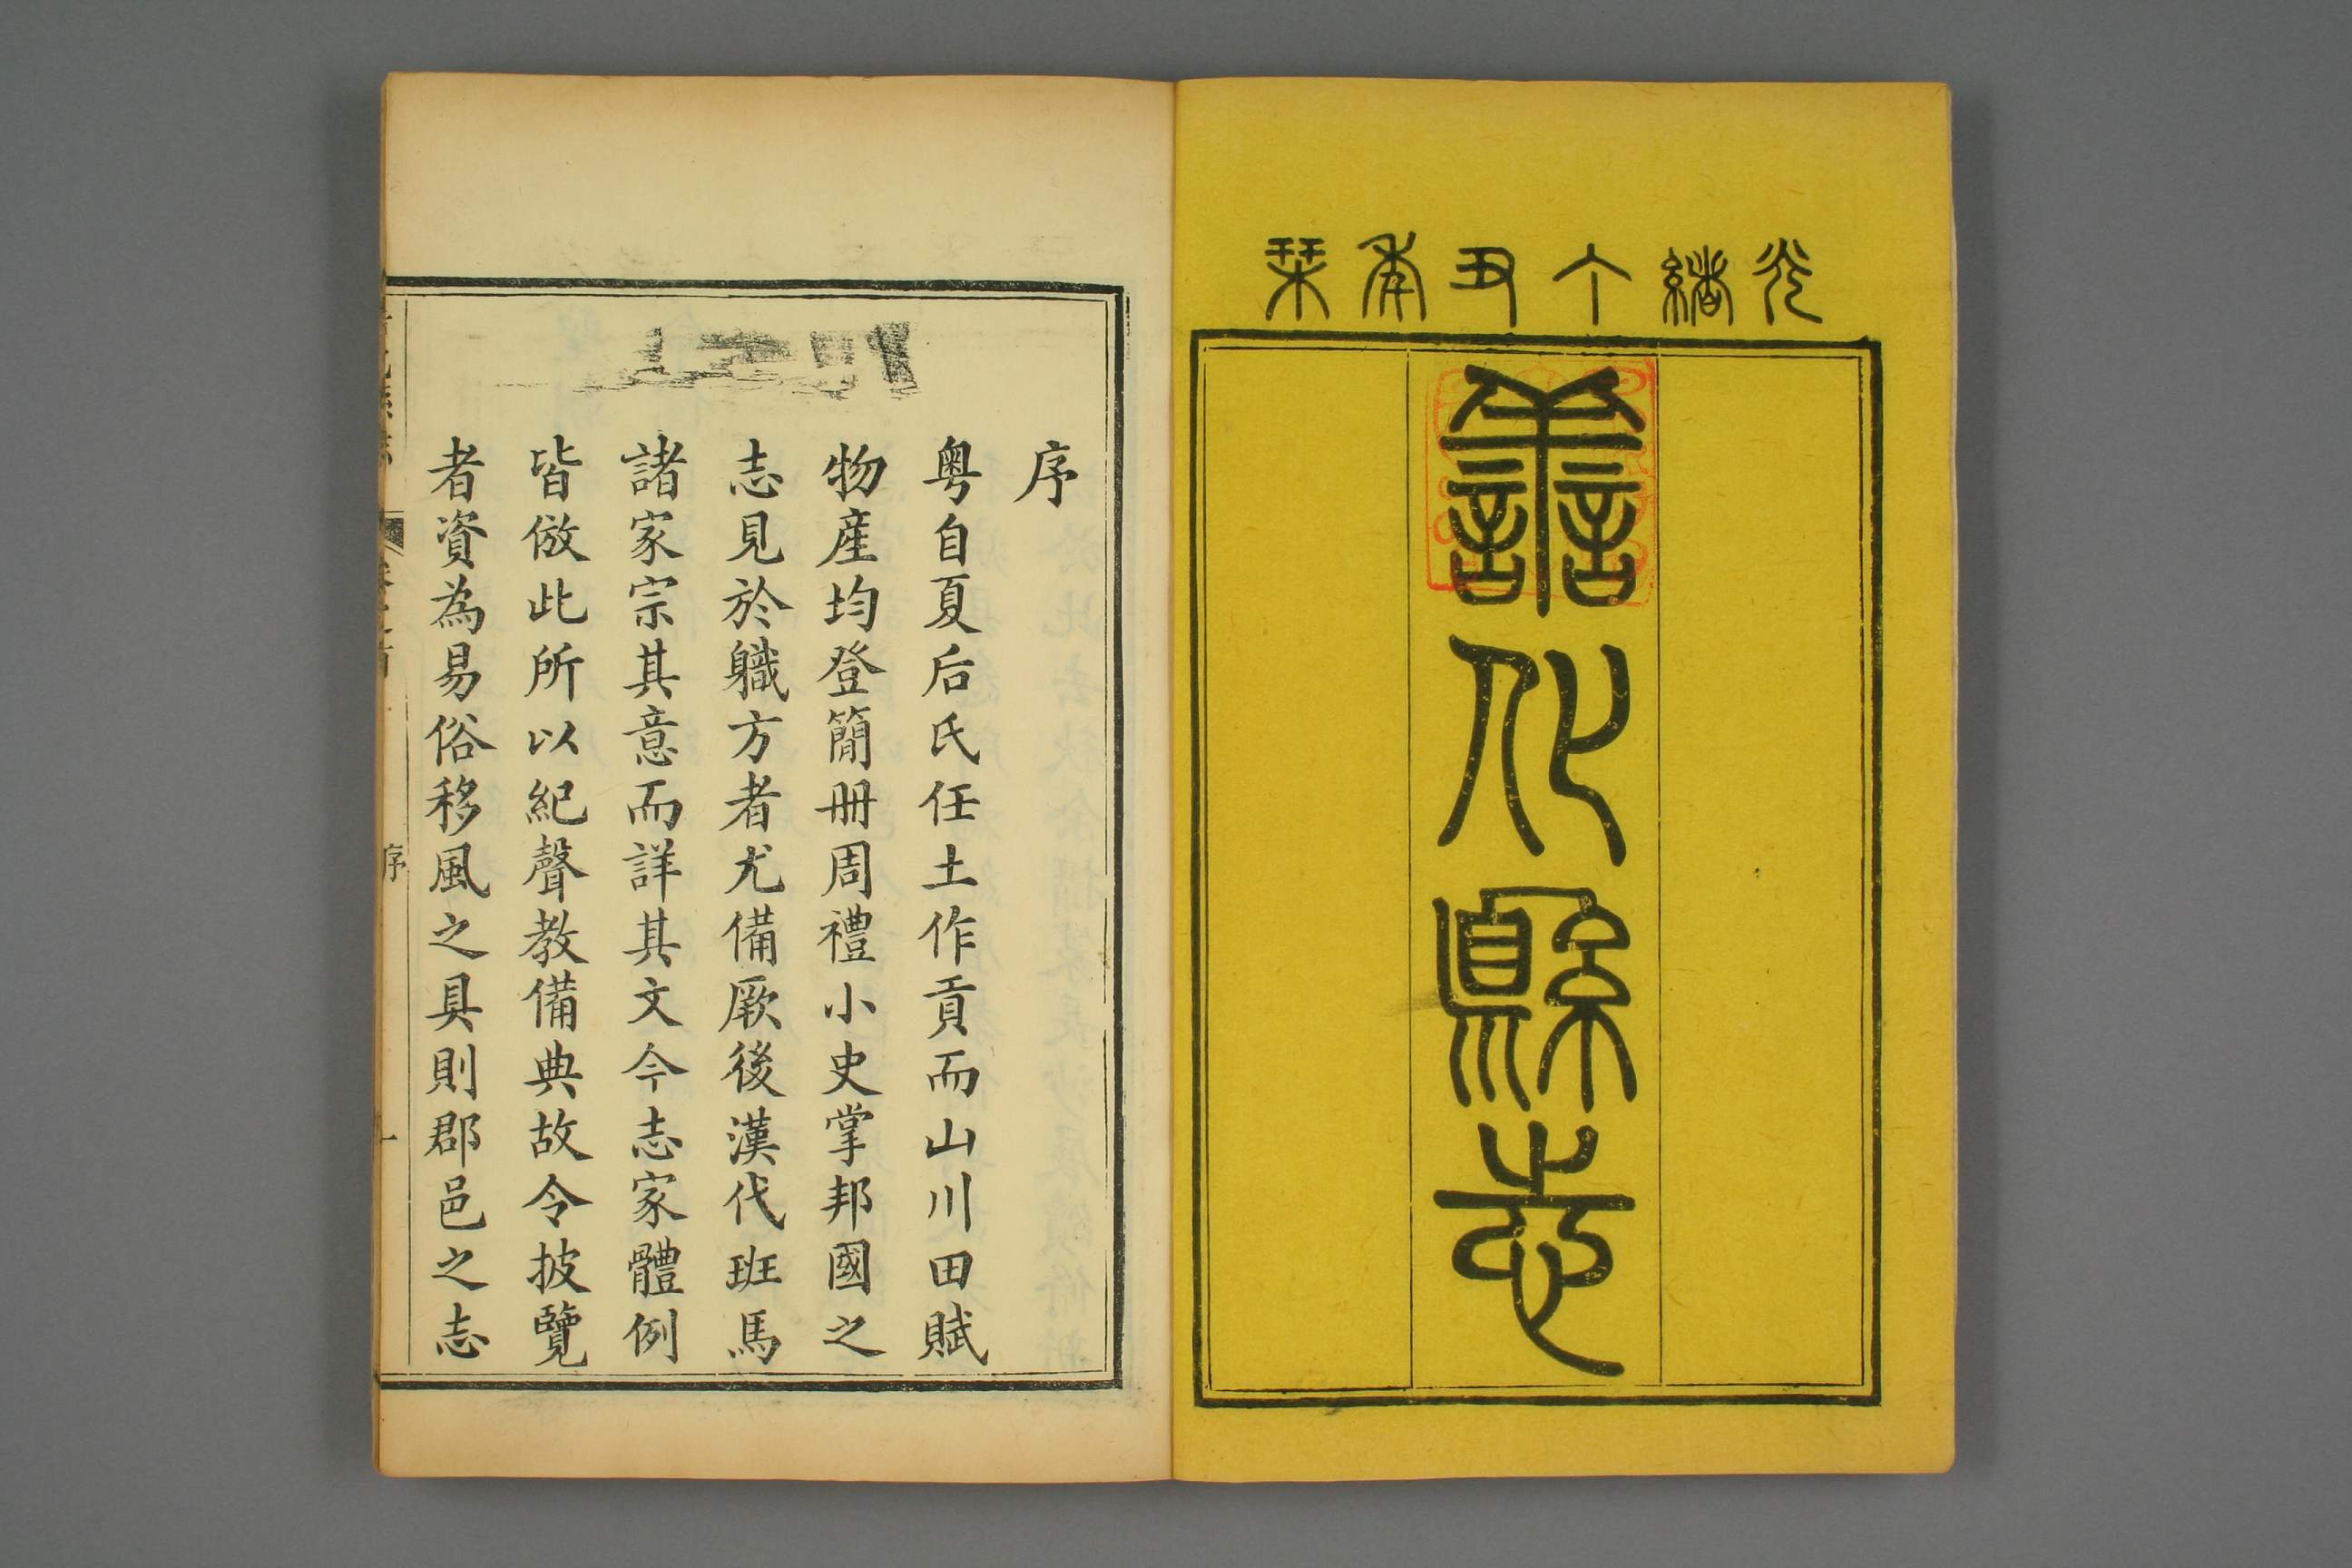 光緒丁丑年栞
譱化縣志
序
粤自夏后氏任土作貢而山川田賦
物産均登簡冊周禮小史掌邦國之
志見於軄方者尤備厥後漢代班馬
諸家宗其意而詳其文今志家體例
皆倣此所以紀聲教備典故令披覽
者資為易俗移風之具則郡邑之志
序